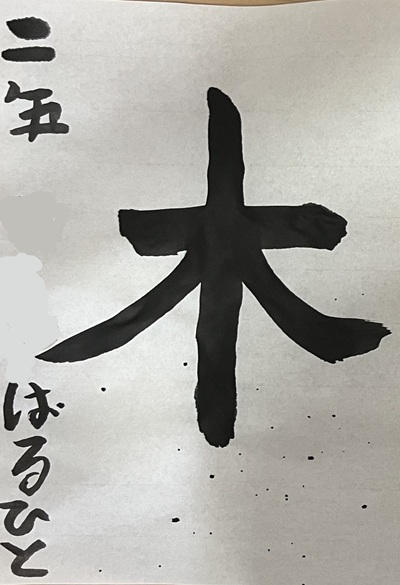 木
二年
はるひと